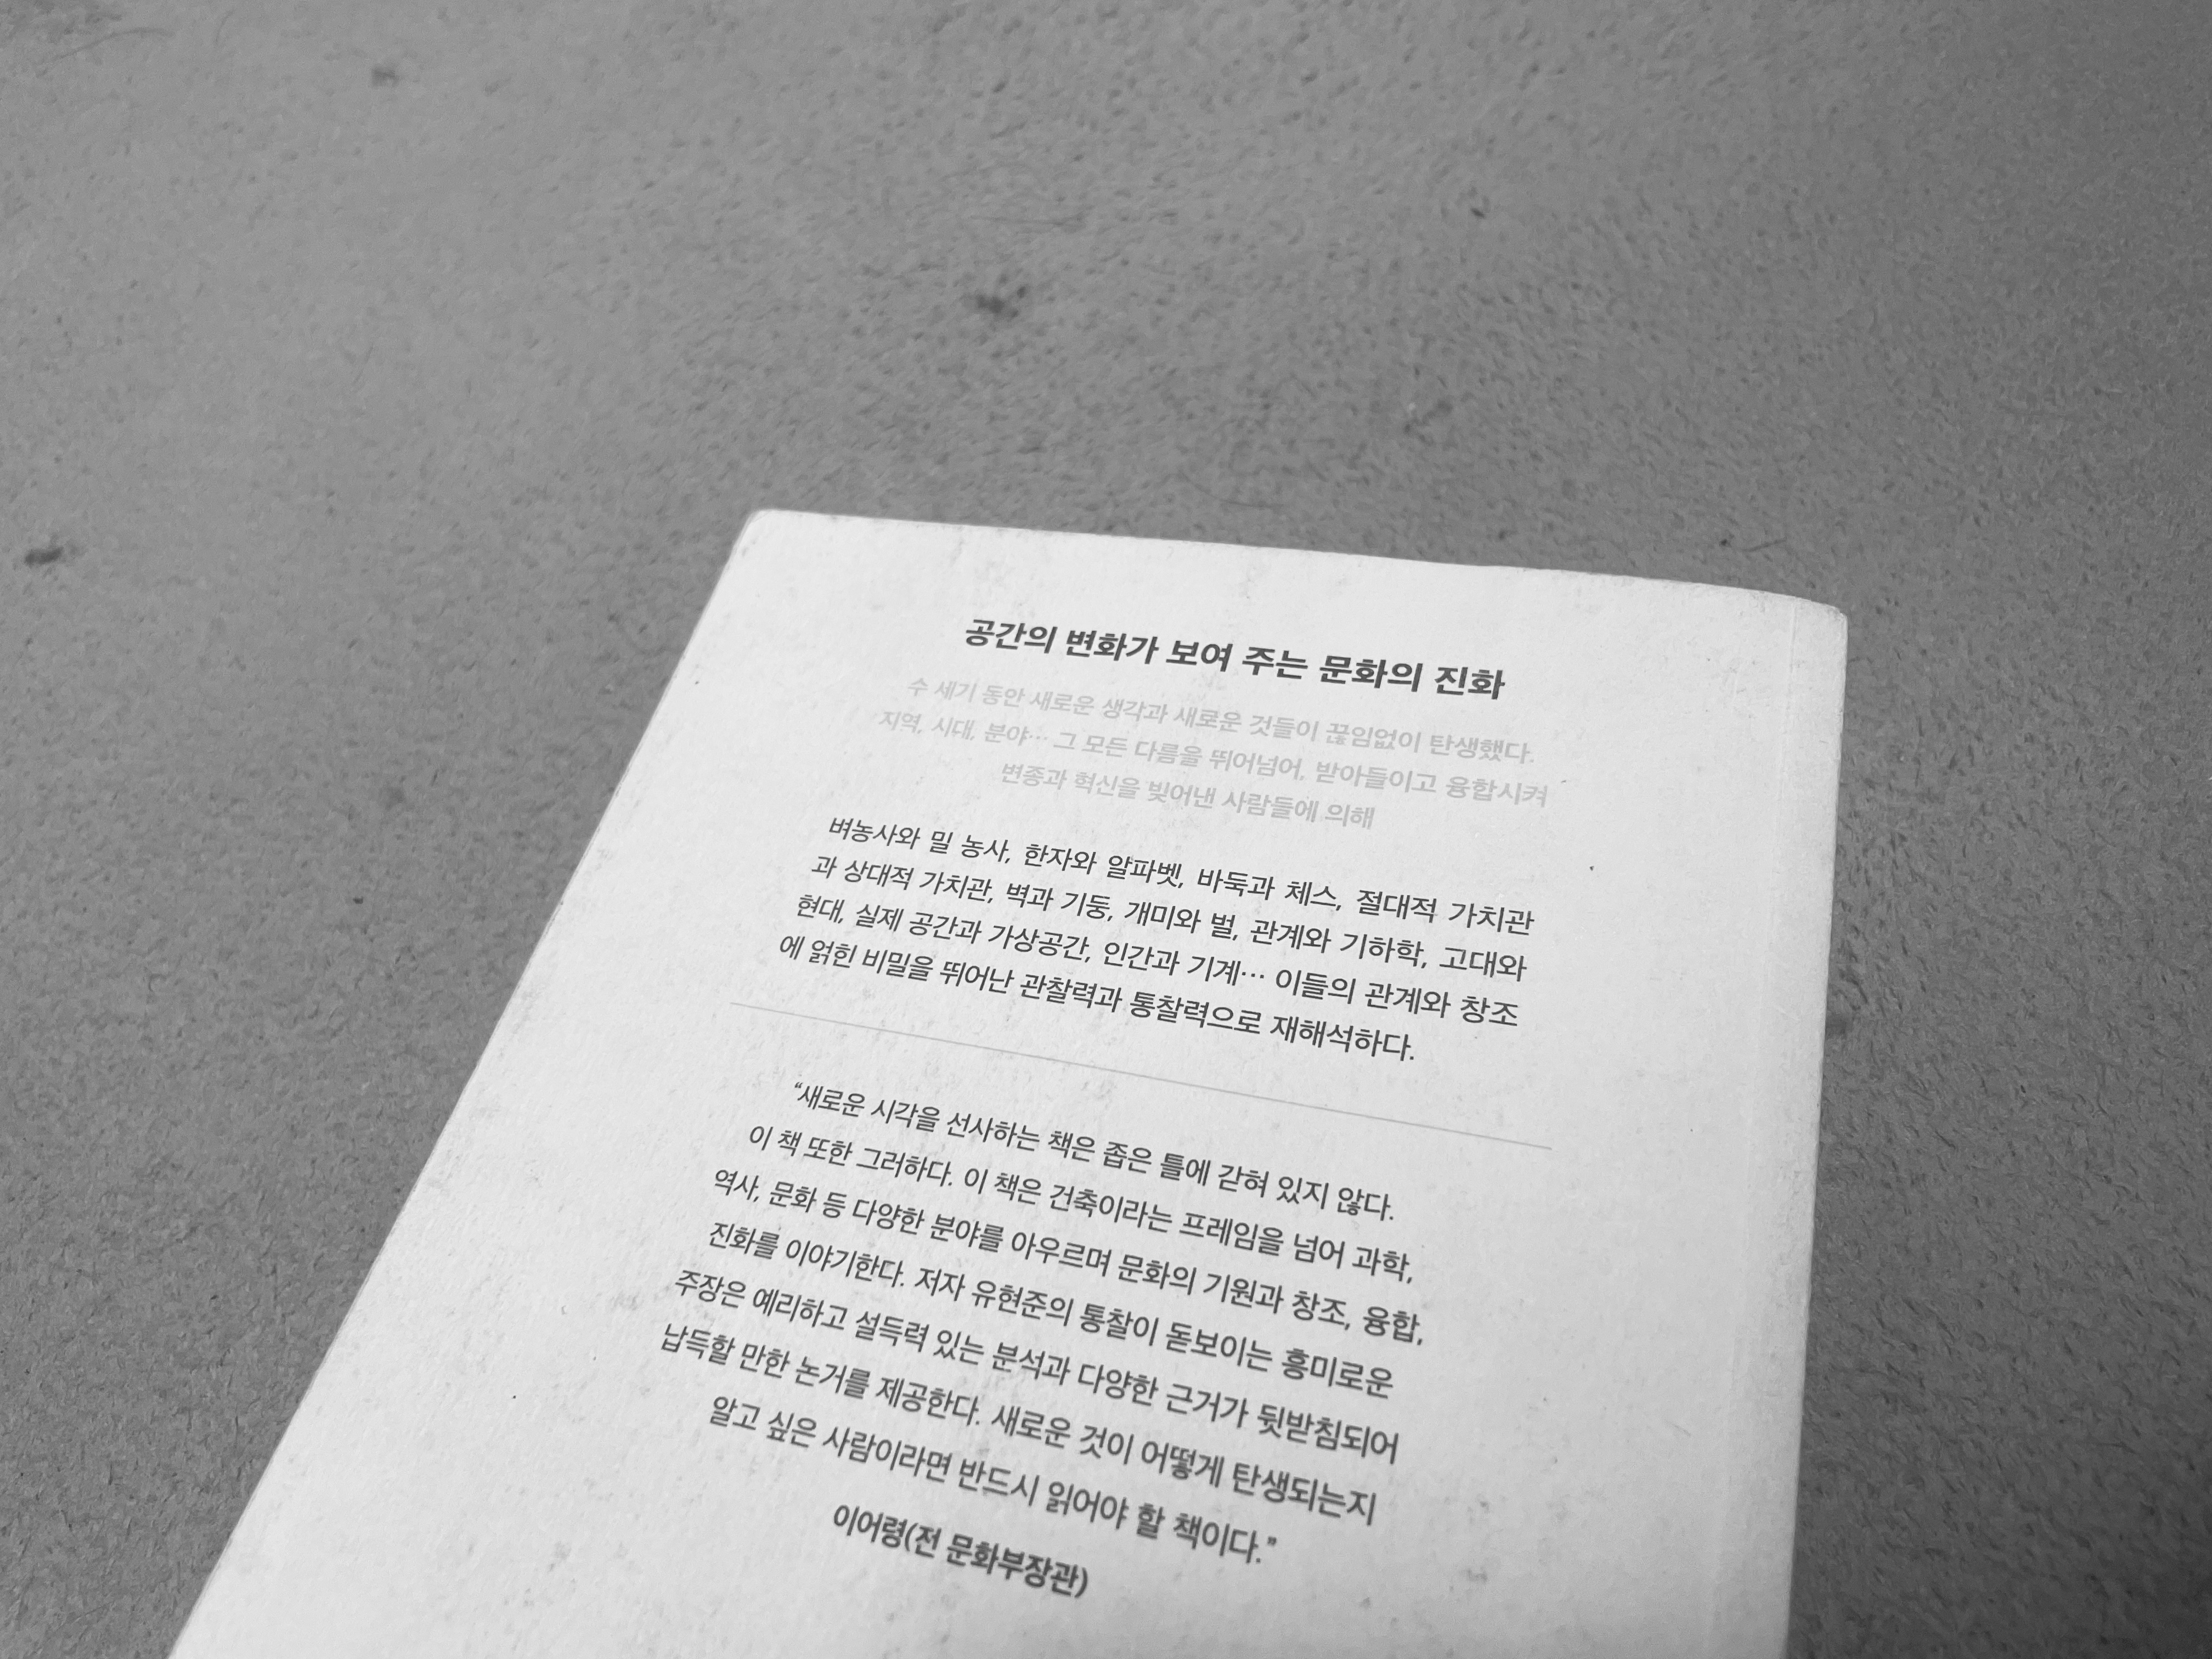 공간의 변화가 보여 주는 문화의 진화
수 세기 동안 새로운 생각과 새로운 것들이 끊임없이 탄생했다.
지역, 시대, 분야… 그 모든 다름을 뛰어넘어, 받아들이고 융합시켜
변종과 혁신을 빚어낸 사람들에 의해
벼농사와 밀 농사, 한자와 알파벳, 바둑과 체스, 절대적 가치관
과 상대적 가치관, 벽과 기둥, 개미와 벌, 관계와 기하학, 고대와
현대, 실제 공간과 가상공간, 인간과 기계… 이들의 관계와 창조
에 얽힌 비밀을 뛰어난 관찰력과 통찰력으로 재해석하다.
“새로운 시각을 선사하는 책은 좁은 틀에 갇혀 있지 않다.
이 책 또한 그러하다. 이 책은 건축이라는 프레임을 넘어 과학,
역사, 문화 등 다양한 분야를 아우르며 문화의 기원과 창조, 융합,
진화를 이야기한다. 저자 유현준의 통찰이 돋보이는 흥미로운
주장은 예리하고 설득력 있는 분석과 다양한 근거가 뒷받침되어
납득할 만한 논거를 제공한다. 새로운 것이 어떻게 탄생되는지
알고 싶은 사람이라면 반드시 읽어야 할 책이다.”
이어령(전 문화부장관)